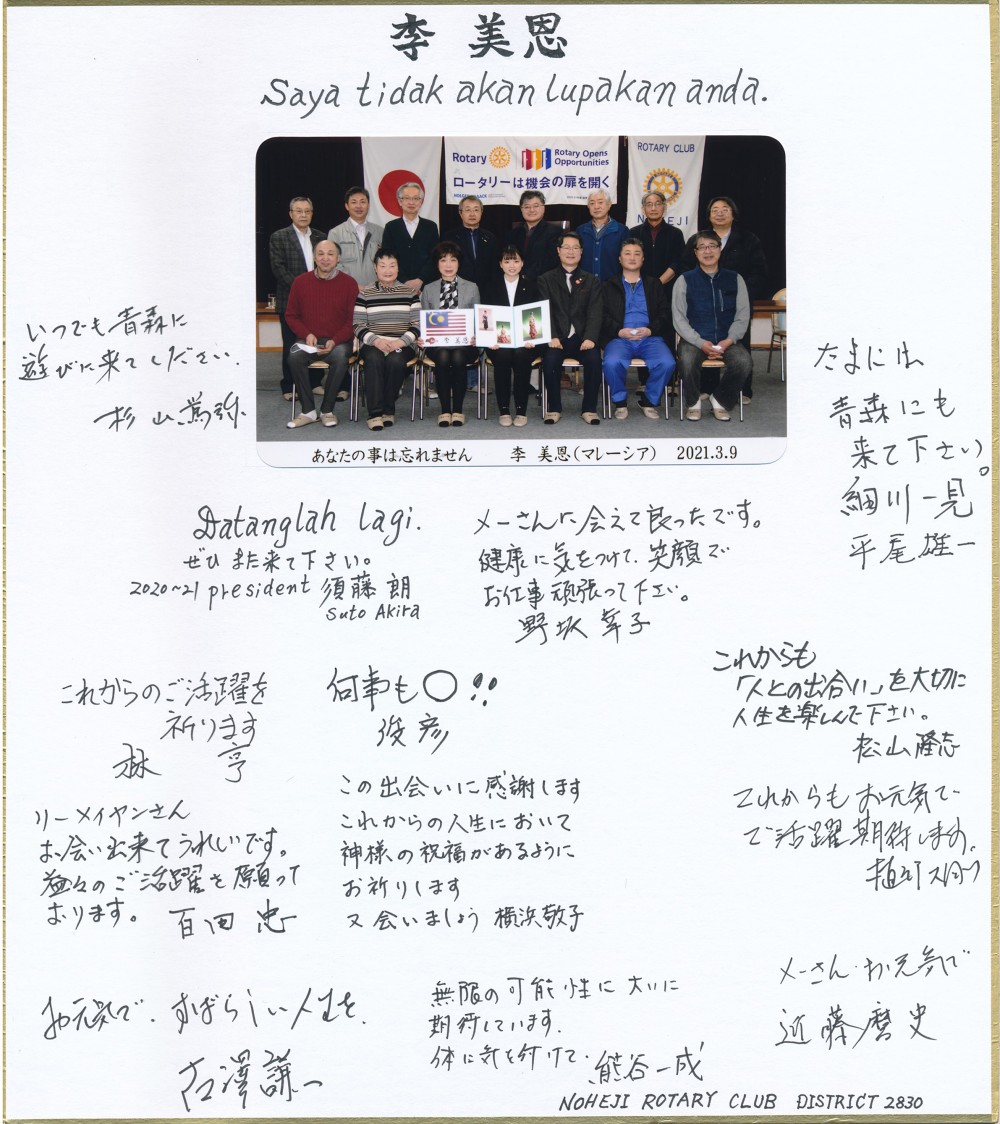 李 美恩
Saya tidak akan lupakan anda.
Rotary
Rotary Opens
Opportunities
ロータリーは機会の扉を開く
ROTARY CLUB
NOHEJI
李 美恩
あなたの事は忘れません 李 美恩(マレーシア) 2021.3.9
いつでも青森に
遊びに来てください.
杉山篤弥
たまには
青森にも
来て下さい。
細川一見
平尾雄一
Datanglah lagi.
ぜひ また来て下さい。
2020~21 president 須藤 朗
Suto Akira
メーさんに会えて良ったです。
健康に気をつけて、笑顔で
お仕事頑張って下さい。
野坂幸子
これからのご活躍を
祈ります
林 亨
何事も〇!!
俊彦
これからも
「人との出合い」を大切に
人生を楽しんで下さい。
松山隆志
リーメイヤンさん
お会い出来てうれしいです。
益々のご活躍を願って
おります。 百田 忠
この出会いに感謝します
これからの人生において
神様の祝福があるように
お祈りします
又会いましょう 横浜敬子
これからもお元気で
ご活躍期待します。
お元気で. すばらしい人生を.
古澤謙一
無限の可能性に大いに
期待しています.
体に気を付けて. 熊谷一成
メーさん.お元気で
近藤磨史
NOHEJI ROTARY CLUB DISTRICT 2830